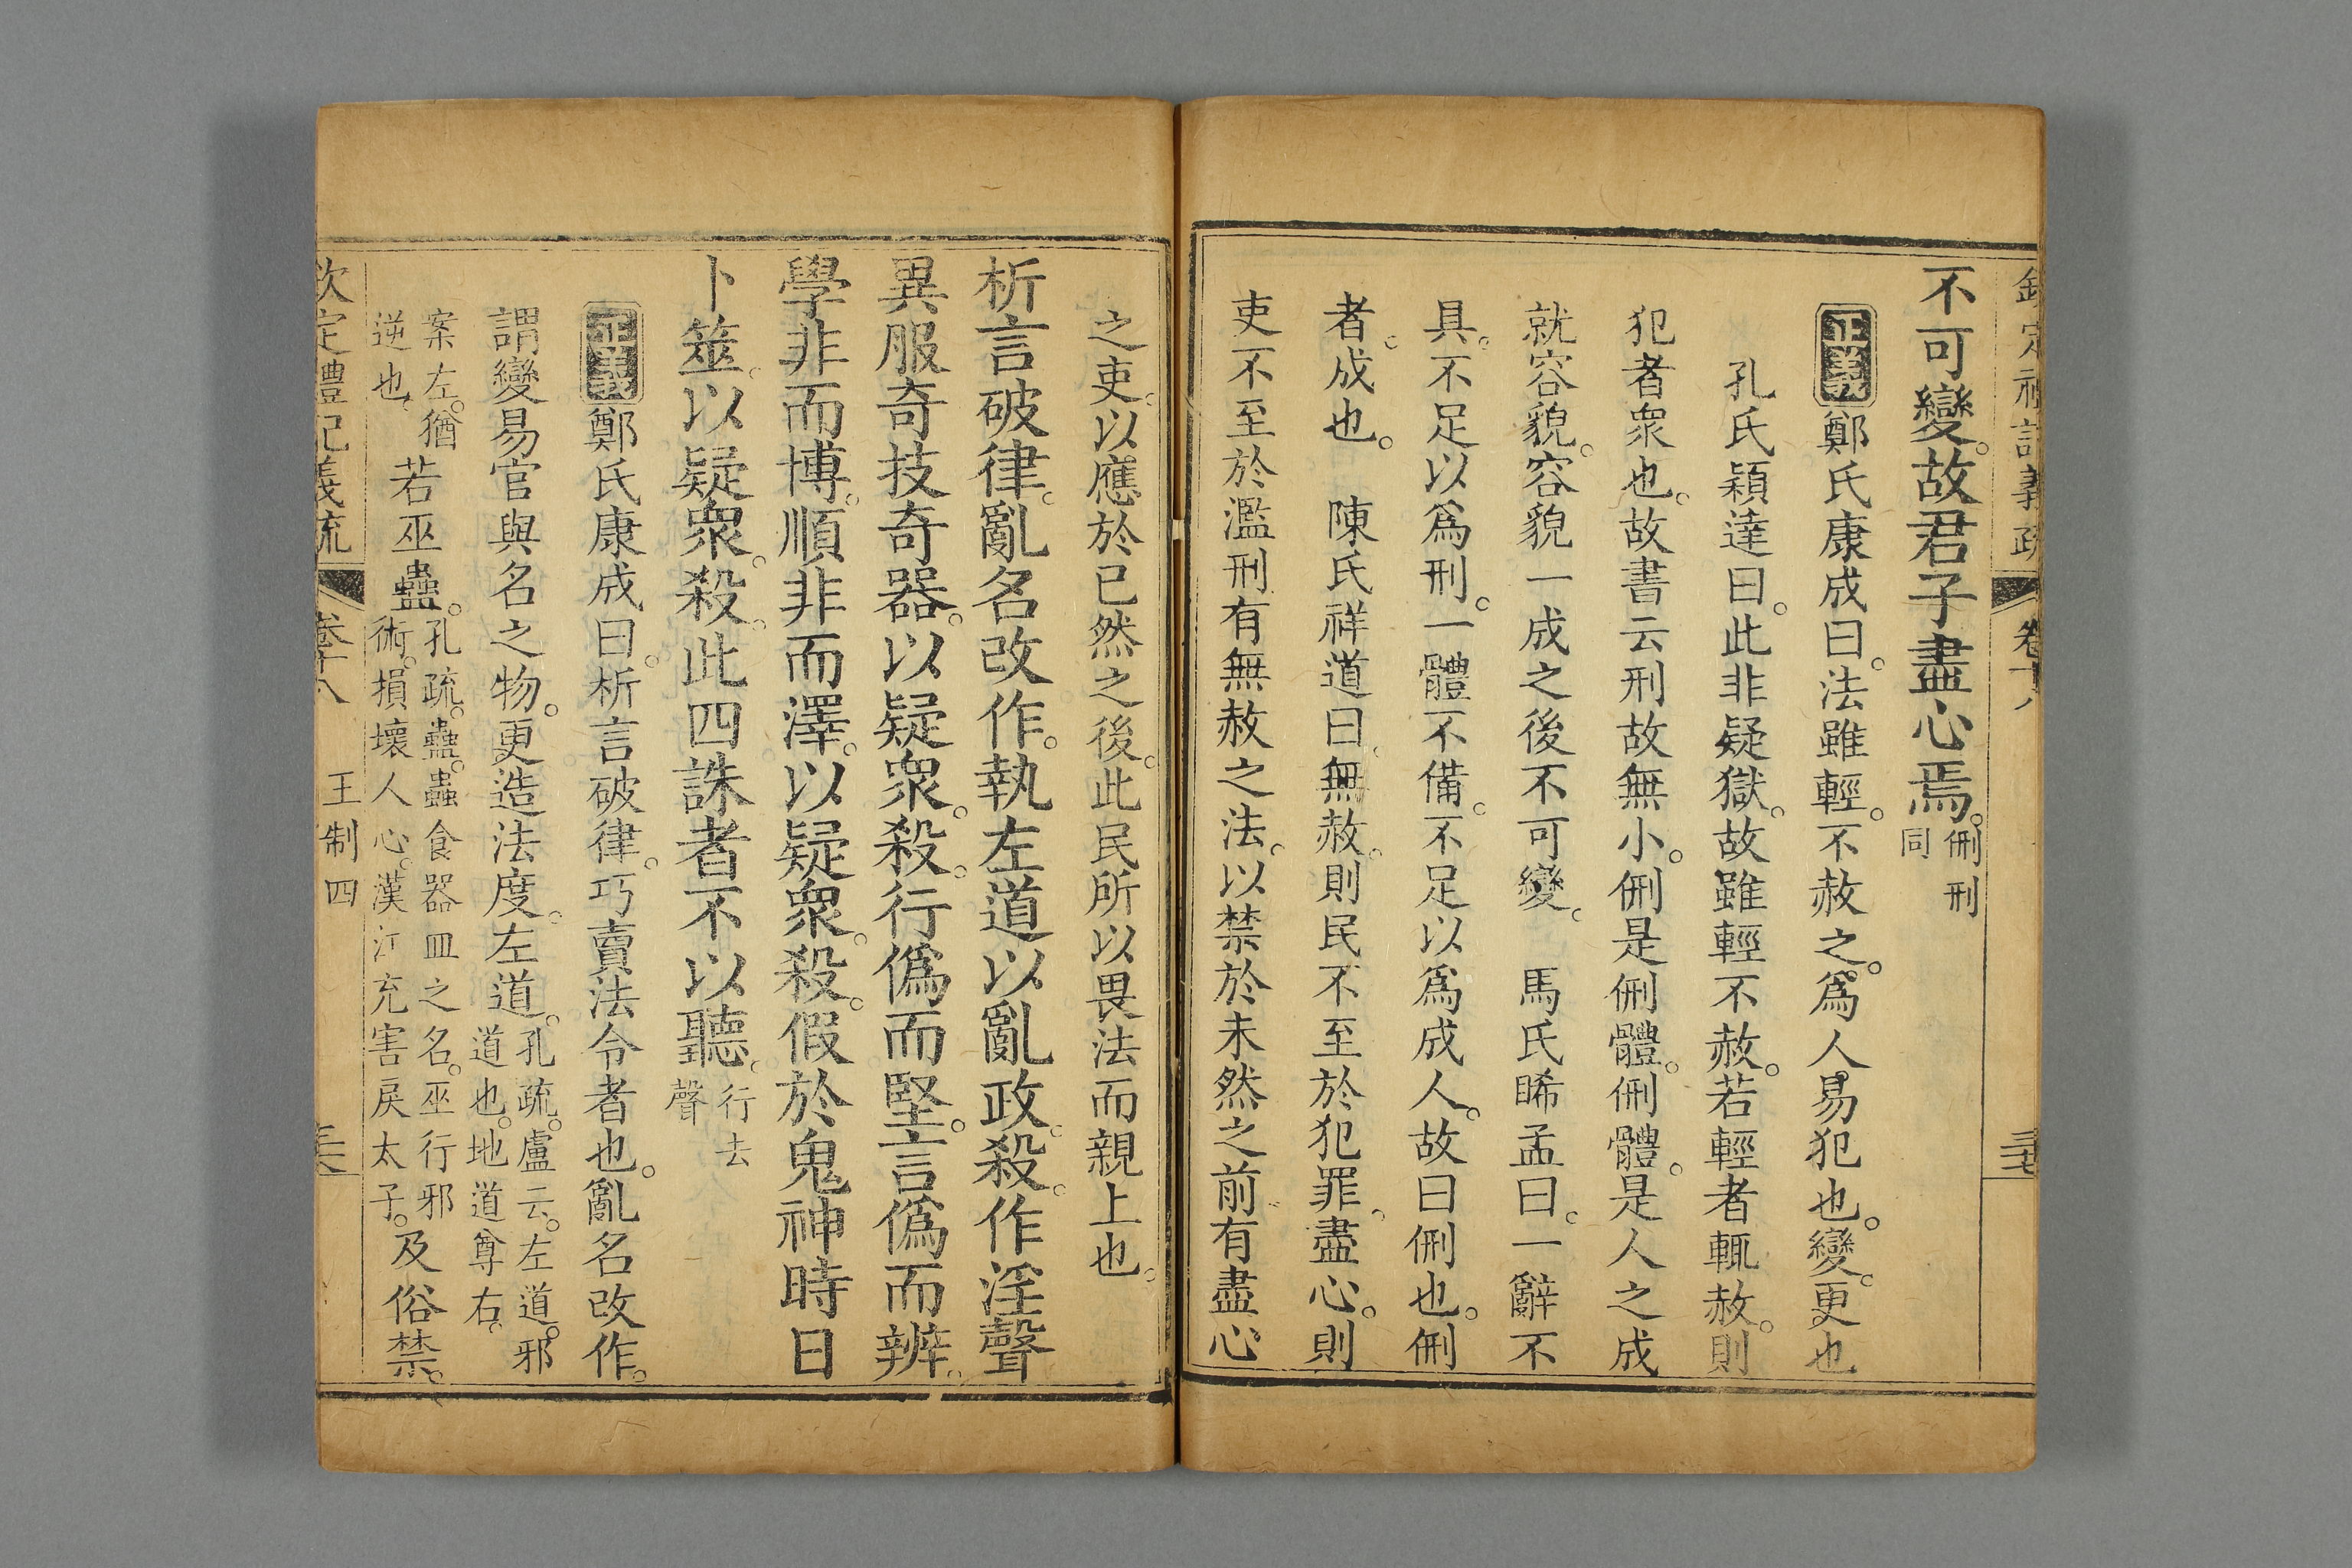 欽定禮記義疏 卷十八
不可變。故君子盡心焉。侀刑同
正義 鄭氏康成曰。法雖輕。不赦之。爲人易犯也。變。更也
孔氏穎達曰。此非疑獄。故雖輕不赦。若輕者輒赦。則
犯者衆也。故書云刑故無小。侀是侀體。侀體。是人之成
就容貌。容貌一成之後不可變。 馬氏睎孟曰。一辭不
具。不足以爲刑。一體不備。不足以爲成人。故曰侀也。侀
者。成也。 陳氏祥道曰。無赦。則民不至於犯罪。盡心。則
吏不至於濫刑有無赦之法。以禁於未然之前有盡心
之吏。以應於已然之後。此民所以畏法而親上也。
析言破律。亂名改作。執左道以亂政。殺。作淫聲
異服奇技奇器。以疑衆。殺。行僞而堅。言僞而辨。
學非而博。順非而澤。以疑衆。殺。假於鬼神時日
卜筮。以疑衆。殺。此四誅者不以聽。行去聲
正義 鄭氏康成曰。析言破律。巧賣法令者也。亂名改作。
謂變易官與名之物。更造法度。左道。孔疏。盧云。左道。邪道也。地道尊右。
案左。猶逆也。若巫蠱。孔疏。蠱。蟲食器皿之名。巫行邪術。損壞人心。漢江充害戾太子。及俗禁。
欽定禮記義疏 卷十八 王制四